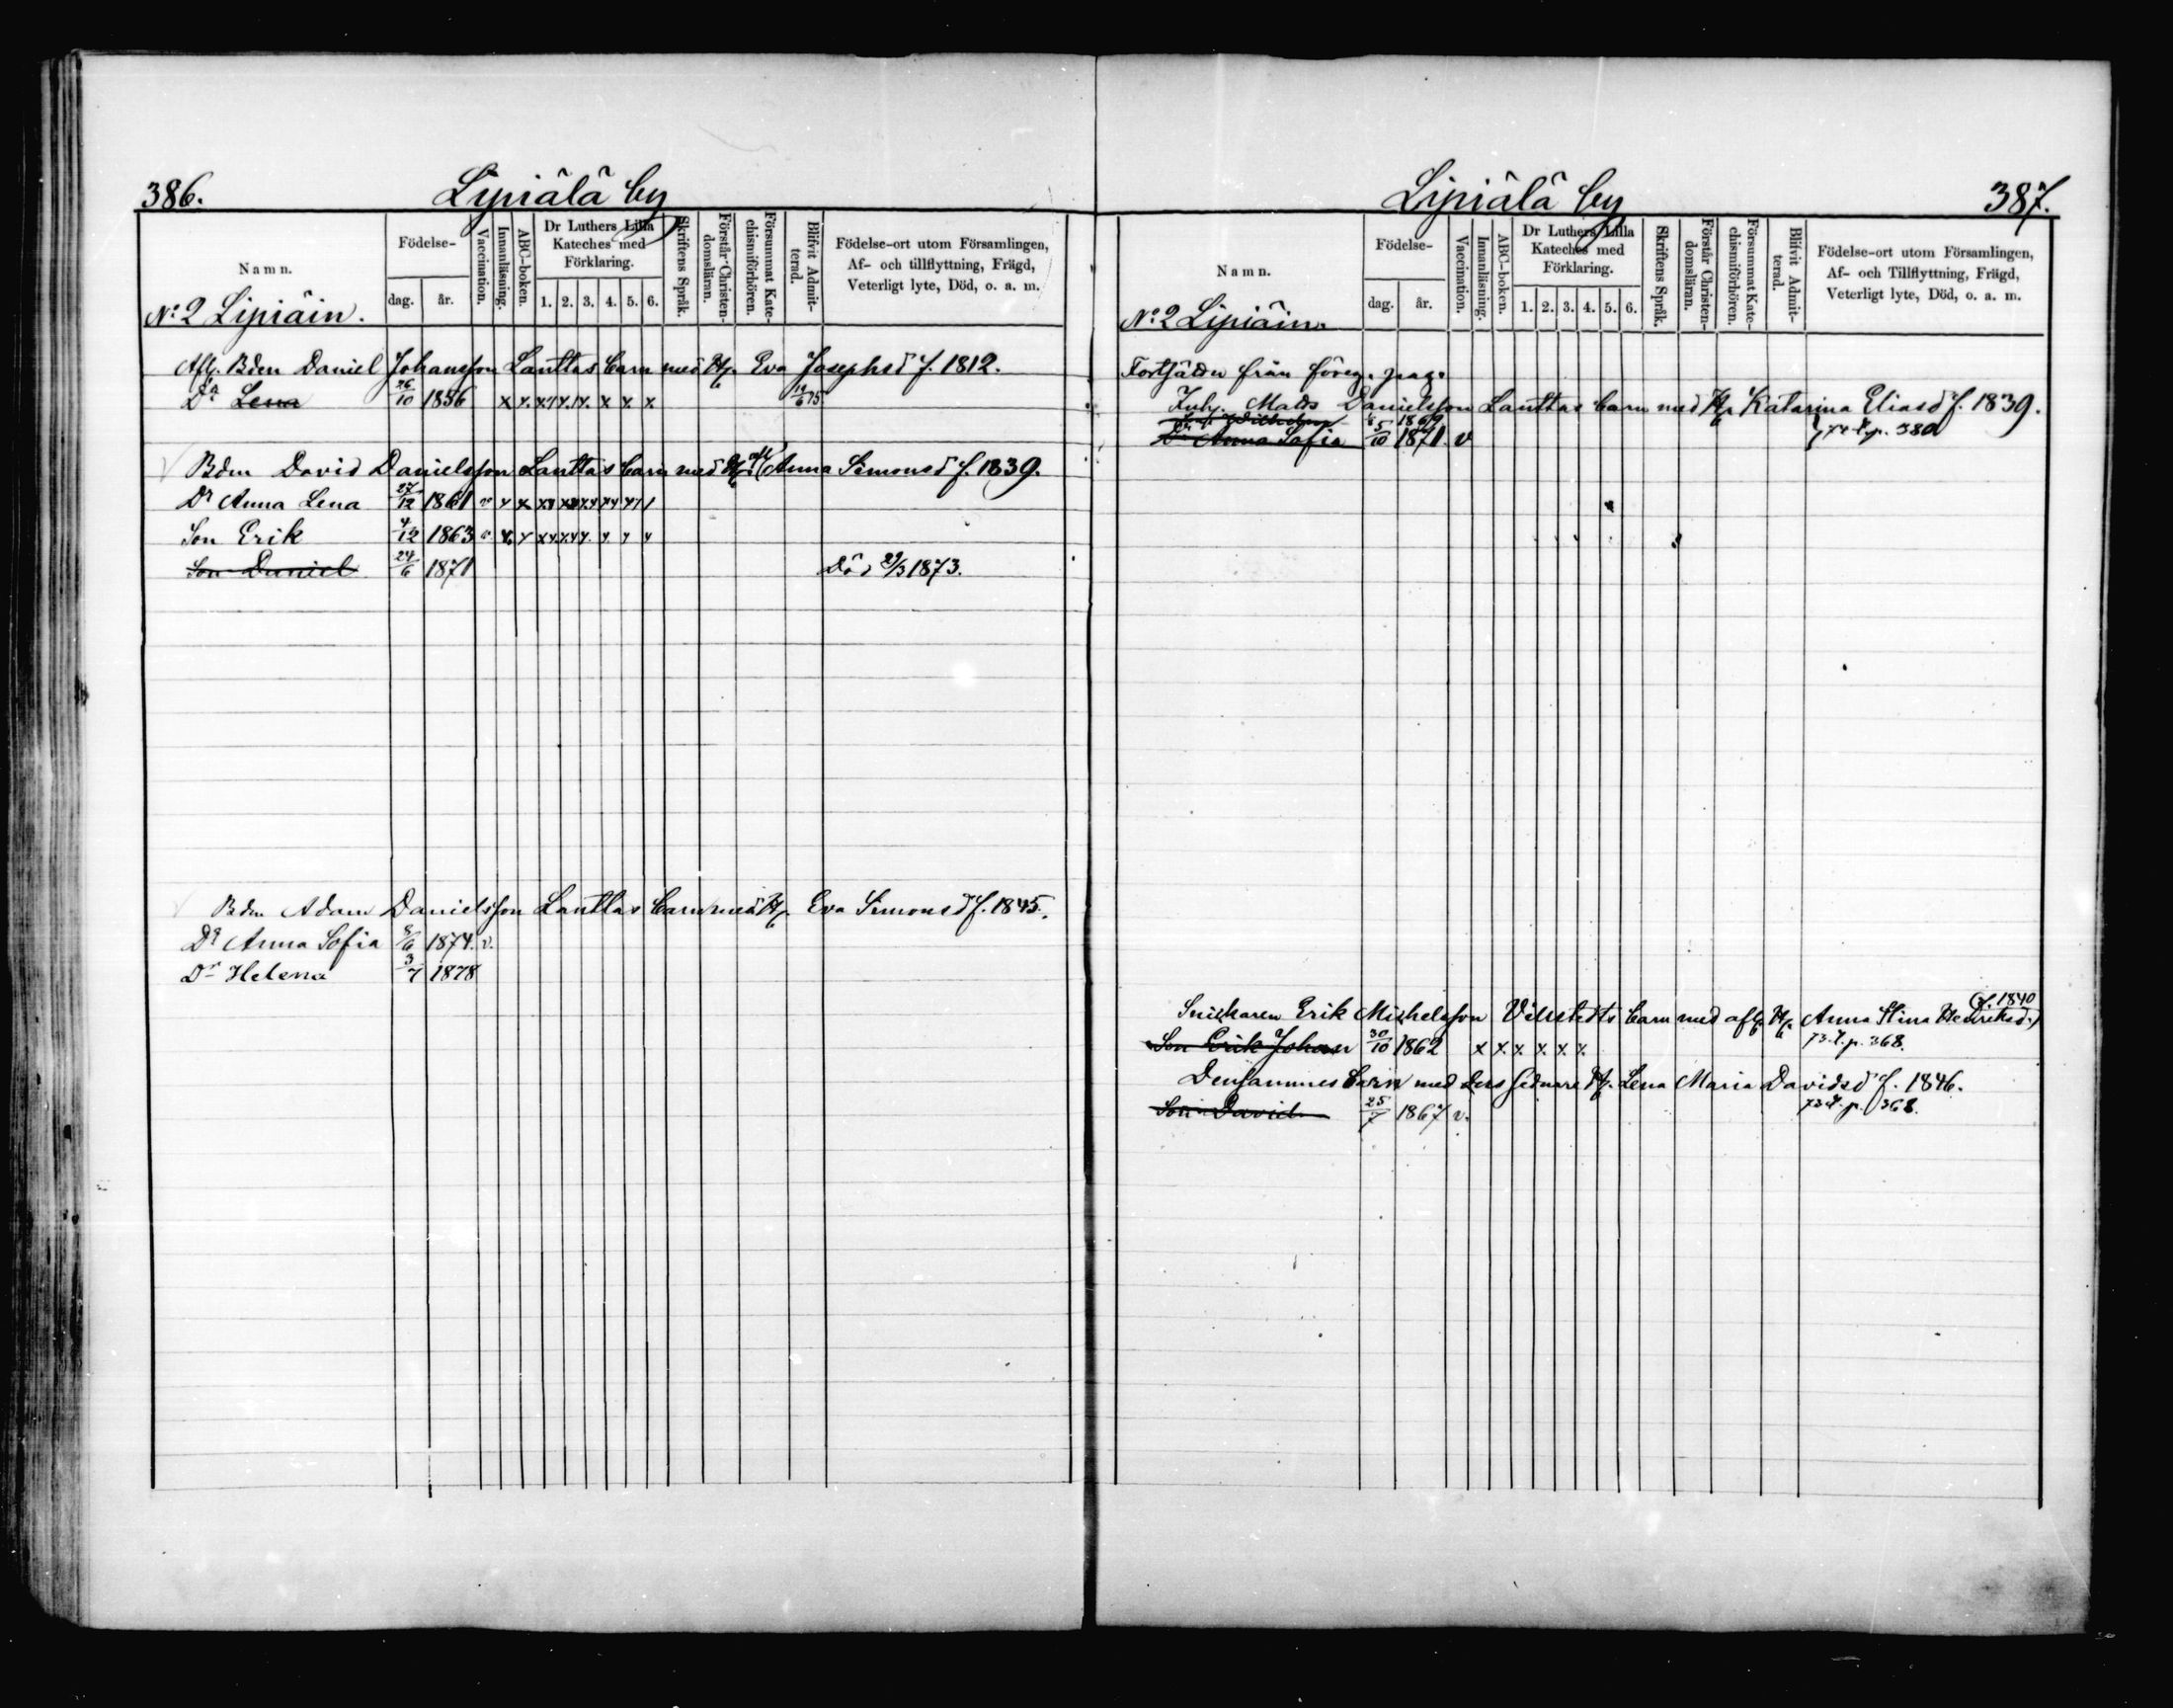 386.
Lipiälä by
Namn.
Födelse-
dag.
år.
Vaccination.
Innanläsning.
ABC-boken.
Dr Luthers Lilla
Kateches med
Förklaring.
1. 2. 3. 4. 5. 6.
Skriftens Språk.
Förstår Christen-
domsläran.
Försummat Kate-
chismiförhören.
Blifvit Admit-
terad.
Födelse-ort utom Församlingen,
Af- och tillflyttning, Frägd,
Veterligt lyte, Död, o. a. m.
No 2 Lipiäin.
Afl. Bden Daniel Johansson Lanttas barn med H. Eva Josephsd f. 1812.
Dr Lena 26/10 1856 x x. x x x x x
Bdm David Danielsson Lanttas barn med H. Anna Simonsd f. 1839.
Dr Anna Lena 27/12 1861 v
Son Erik 4/12 1863 v
Son Daniel 24/6 1871 Död 29/3 1873.
Bdm Adam Danielsson Lanttas barn med H. Eva Simonsd f. 1845.
Dr Anna Sofia 8/6 1874. v.
Dr Helena 3/7 1878
Lipiälä by
387.
Namn.
Födelse-
dag.
år.
Vaccination.
Innanläsning.
ABC-boken.
Dr Luthers Lilla
Kateches med
Förklaring.
1. 2. 3. 4. 5. 6.
Skriftens Språk.
Förstår Christen-
domsläran.
Försummat Kate-
chismiförhören.
Blifvit Admit-
terad.
Födelse-ort utom Församlingen,
Af- och Tillflyttning, Frägd,
Veterligt lyte, Död, o. a. m.
No 2 Lipiäin.
Fortsätter från föreg. pag.
Inh. Matts Danielsson Lanttas barn med H. Katarina Eliasd f. 1839.
Wilhelm 1869
Dr Anna Sofia 5/10 1871. v p. 380
Snickaren Erik Michelsson Villstedts barn med afl. H. Anna Stina Henriksd. (f. 1840
Son Erik Johan 30/10 1862 x x x x x x 73 p. 368.
Densammes barn med dess sednare H. Lena Maria Davidsd f. 1846.
Son David 25/7 1867 v. 73 p. 368.